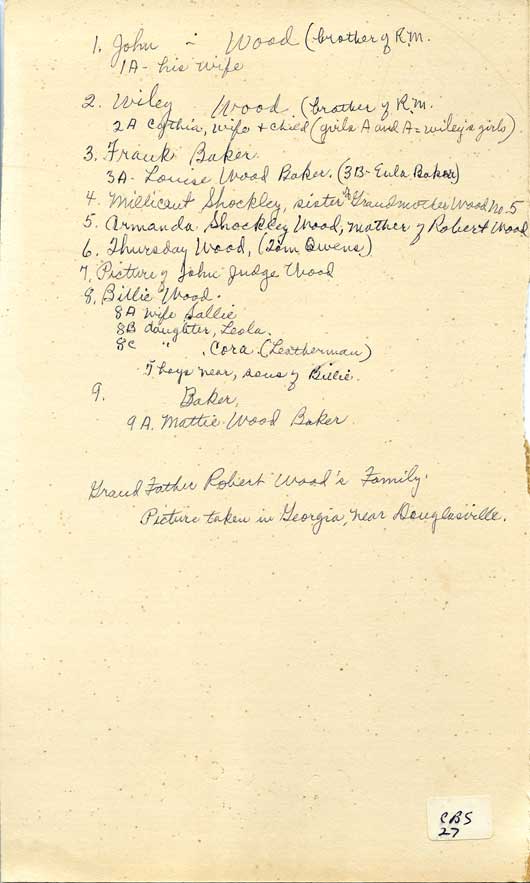 1. John - Wood (brother of R.M.
1A - his wife
2. Wiley Wood (brother of R.M.
2A Cythia, wife + child (girls A and A = wiley's girls)
3. Frank Baker
3A - Louise Wood Baker. (3B - Eula Baker)
4. Millicent Shockley, sister of Grandmother Wood No. 5
5. Armanda Shockley Wood, mother of Robert Wood
6. Thursday Wood, (Tom Owens)
7. Picture of John Judge Wood
8. Billie Wood.
8A wife Sallie
8B daughter, Leola.
8C " , Cora (Leatherman)
5 boys near, sons of Billie.
9. Baker,
9A. Mattie Wood Baker
Grand Father Robert Wood's Family.
Picture taken in Georgia, near Douglasville.
CBS
27